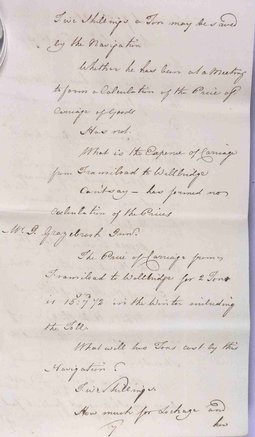 Five Shillings a Ton may be saved
by the Navigation
Whether he has been at a Meeting
to form a Calculation of the Price of
Carriage of Goods
Has not.
What is the Expence of Carriage
from Framiload to Wallbridge
Cant say – has formed no
Calculation of the Prices
Mr. B. Grazebrook
The Price of Carriage from
Framiload to Wallbridge for 2 Tons
is in the Winter including
the Toll
What will two Tons cost by this
Navigation?
Five Shillings.
How much for Lockage and
how